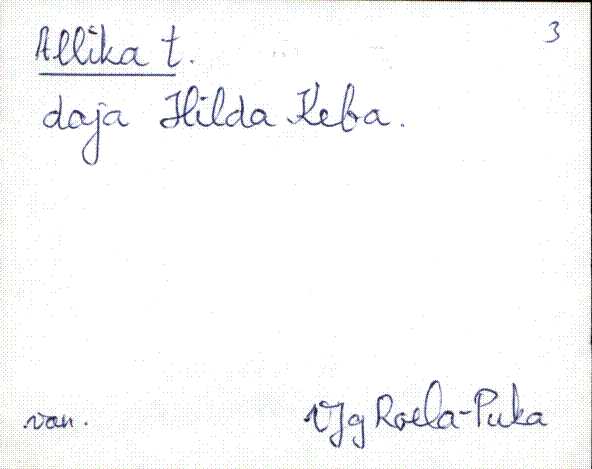 3
Allika t.
daja Hilda Keba.
van.
VJg Roela-Puka